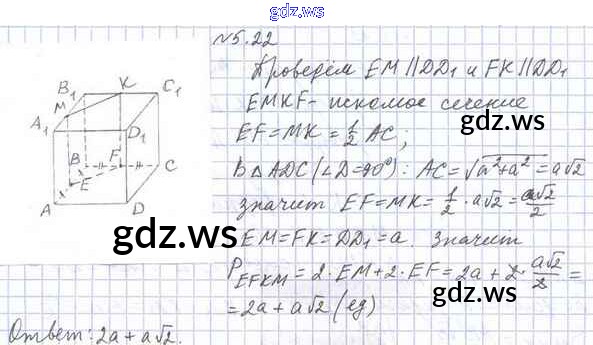 gdz.ws
№5.22
Проведём EM∥DD₁ и FK∥DD₁
EMKF - искомое сечение
EF=MK=½AC;
В △ADC (∠D=90°): AC=√a²+a²=a√2
значит EF=MK=½·a√2=a√2/2
EM=FK=DD₁=a. Значит
P_EFKM=2·EM+2·EF=2a+2·a√2/2=
=2a+a√2 (ед)
Ответ: 2a+a√2.
B₁ K C₁
M
A₁ D₁
B F C
E
A D
gdz.ws
gdz.ws